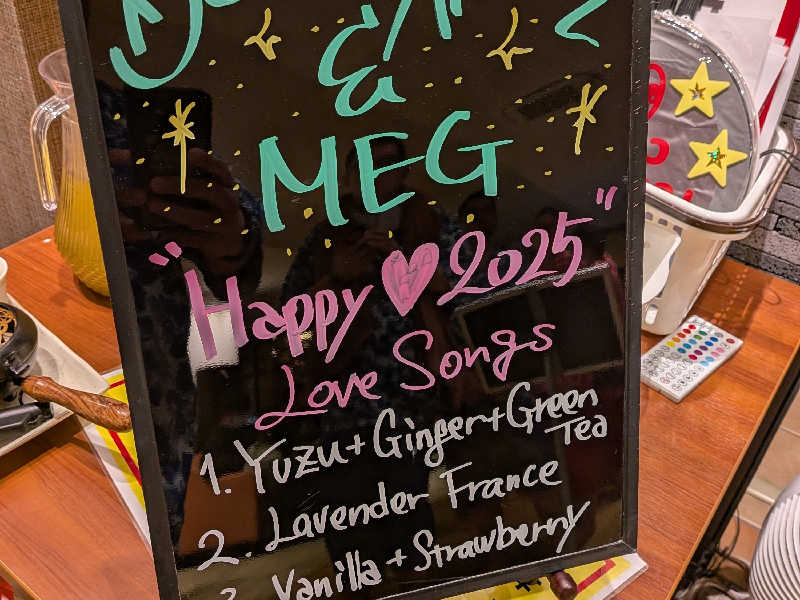 &
MEG
"Happy ♥ 2025"
Love Songs
1. Yuzu + Ginger + Green
Tea
2. Lavender France
3. Vanilla + Strawberry